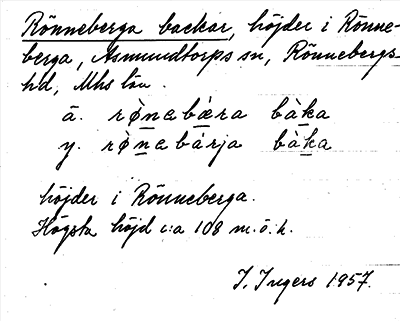 Rönneberga backar, höjder i Rönne-
berga, Asmundtorps sn, Rönnebergs
hd, Mhs län.
ä. rø̀nabæra bàka
y. rø̀nabárja bàka
höjder i Rönneberga.
Högsta höjd c:a 108 m.ö.h.
I. Ingers 1957.